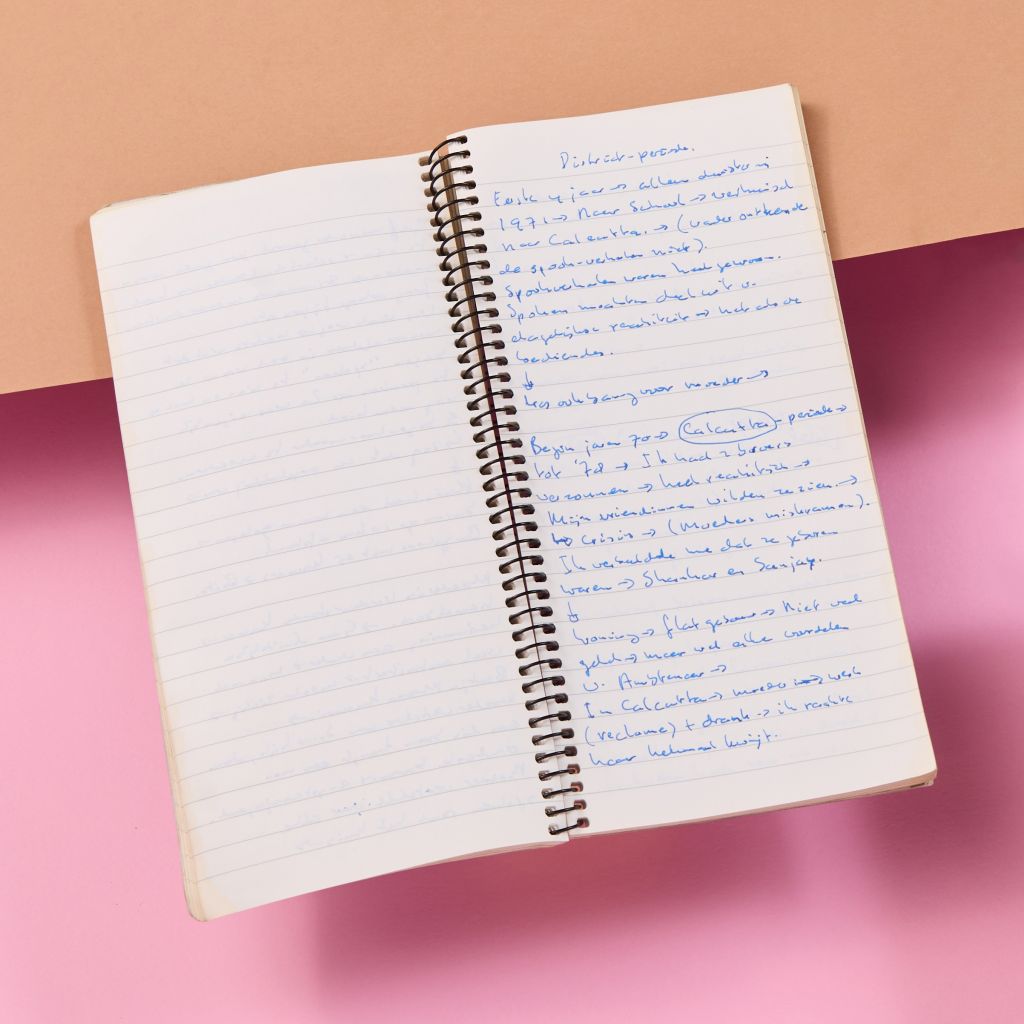 District-periode.
Eerste 4 jaar → alleen
1971 → Naar School → verhuisd
naar Calcutta. → (vader ontkende
de spook-verhalen niet).
Spookverhalen waren heel gewoon.
Spoken maakten deel uit v.
dagelijkse realiteit → net als de
bediendes.
↓
les ook bang voor moeder →
Begin jaren 70 → Calcutta-periode →
tot '78 → Ik had 2 broers
verzonnen → heel realistisch →
Mijn vriendinnen wilden ze zien. →
↳ Crisis → (Moeders miskramen).
Ik vertelde me dat ze
waren → Shankar en Sanjay.
↓
woning → flatgebouw → Niet veel
geld → maar wel alle voordelen
v. Ambtenaar →
In Calcutta → moeder → werk
(reclame) + drank → ik raakte
haar helemaal kwijt.